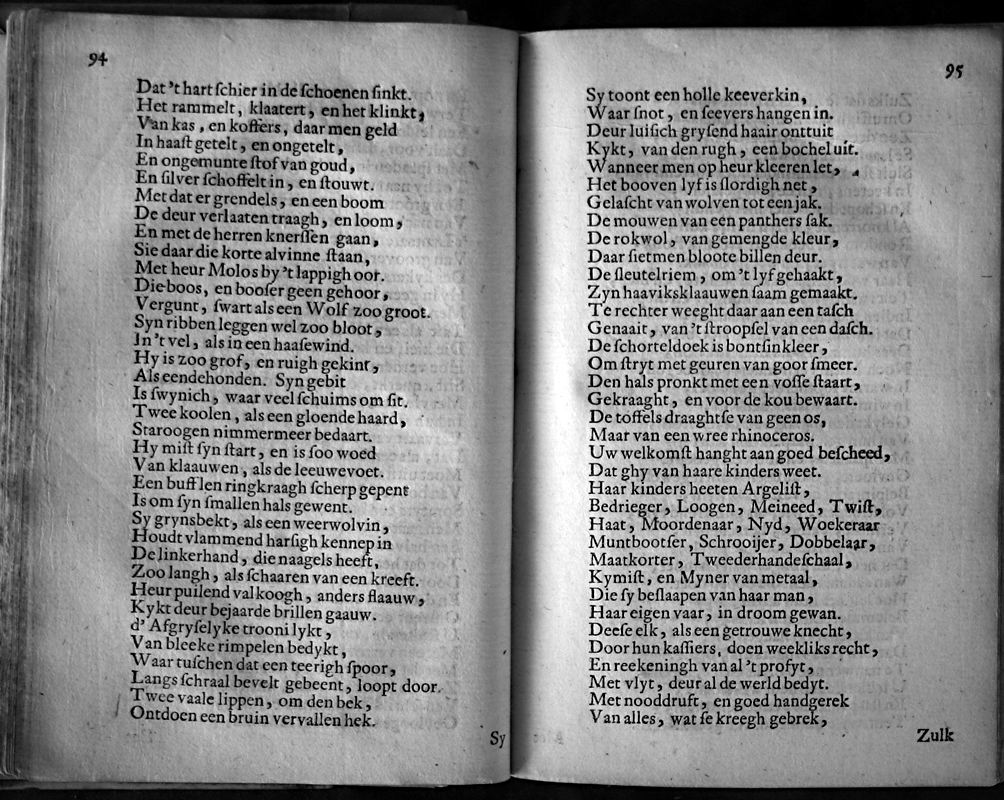 94
Dat 't hart ſchier in de ſchoenen ſinkt.
Het rammelt, klaatert, en het klinkt,
Van kas, en koffers, daar men geld
In haaſt getelt, en ongetelt,
En ongemunte ſtof van goud,
En ſilver ſchoffelt in, en ſtouwt.
Met dat er grendels, en een boom
De deur verlaaten traagh, en loom,
En met de herren knerſſen gaan,
Sie daar die korte alvinne ſtaan,
Met heur Molos by 't lappigh oor.
Die boos, en booſer geen gehoor,
Vergunt, ſwart als een Wolf zoo groot.
Syn ribben leggen wel zoo bloot,
In 't vel, als in een haaſewind.
Hy is zoo grof, en ruigh gekint,
Als eendehonden. Syn gebit
Is ſwynich, waar veel ſchuims om ſit.
Twee koolen, als een gloende haard,
Staroogen nimmermeer bedaart.
Hy miſt ſyn ſtart, en is ſoo woed
Van klaauwen, als de leeuwevoet.
Een bufflen ringkraagh ſcherp gepent
Is om ſyn ſmallen hals gewent.
Sy grynsbekt, als een weerwolvin,
Houdt vlammend harſigh kennep in
De linkerhand, die naagels heeft,
Zoo langh, als ſchaaren van een kreeft.
Heur puilend valkoogh, anders flaauw,
Kykt deur bejaarde brillen gaauw.
d' Afgryſelyke trooni lykt,
Van bleeke rimpelen bedykt,
Waar tuſchen dat een teerigh ſpoor,
Langs ſchraal bevelt gebeent, loopt door.
Twee vaale lippen, om den bek,
Ontdoen een bruin vervallen hek.
Sy
95
Sy toont een holle keeverkin,
Waar ſnot, en ſeevers hangen in.
Deur luiſich gryſend haair onttuit
Kykt, van den rugh, een bochel uit.
Wanneer men op heur kleeren let,
Het booven lyf is ſlordigh net,
Gelaſcht van wolven tot een jak.
De mouwen van een panthers ſak.
De rok wol, van gemengde kleur,
Daar ſiet men bloote billen deur.
De ſleutelriem, om 't lyf gehaakt,
Zyn haaviksklaauwen ſaam gemaakt.
Te rechter weeght daar aan een taſch
Genaait, van 't ſtroopſel van een daſch.
De ſchorteldoek is bontſinkleer,
Om ſtryt met geuren van goor ſmeer.
Den hals pronkt met een voſſe ſtaart,
Gekraaght, en voor de kou bewaart.
De toffels draaghtſe van geen os,
Maar van een wree rhinoceros.
Uw welkomſt hanght aan goed beſcheed,
Dat ghy van haare kinders weet.
Haar kinders heeten Argeliſt,
Bedrieger, Loogen, Meineed, Twiſt,
Haat, Moordenaar, Nyd, Woekeraar
Muntbootſer, Schrooijer, Dobbelaar,
Maatkorter, Tweederhandeſchaal,
Kymiſt, en Myner van metaal,
Die ſy beſlaapen van haar man,
Haar eigen vaar, in droom gewan.
Deeſe elk, als een getrouwe knecht,
Door hun kaſſiers, doen weekliks recht,
En reekeningh van al 't profyt,
Met vlyt, deur al de werld bedyt.
Met nooddruft, en goed handgerek
Van alles, wat ſe kreegh gebrek,
Zulk